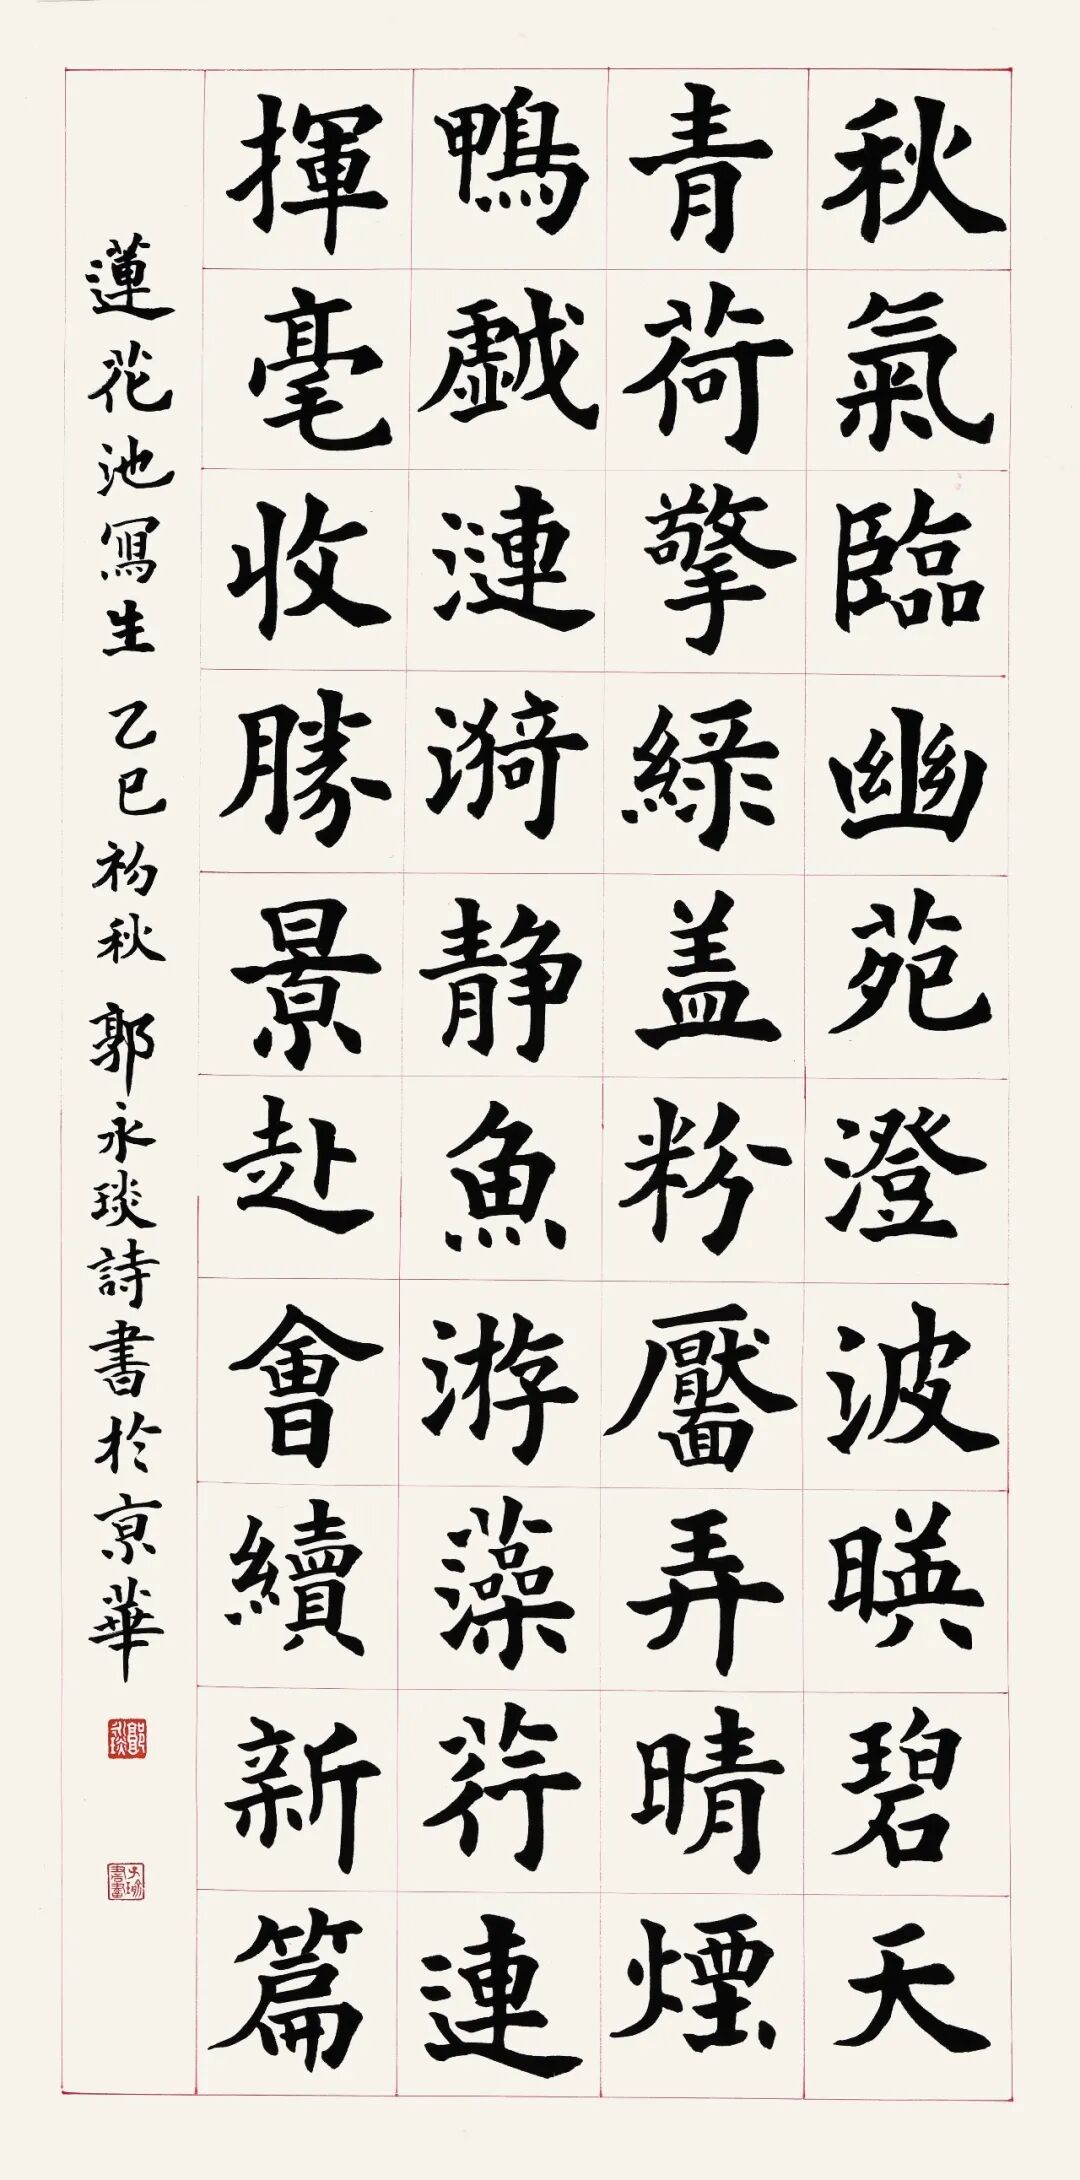 秋氣臨幽苑澄波暎碧天
青荷擎緑盖粉靨弄晴煙
鴨戯漣漪静魚游藻荇連
揮毫收勝景赴會續新篇
蓮花池寫生 乙巳初秋 郭永琰詩書於京華
郭永琰